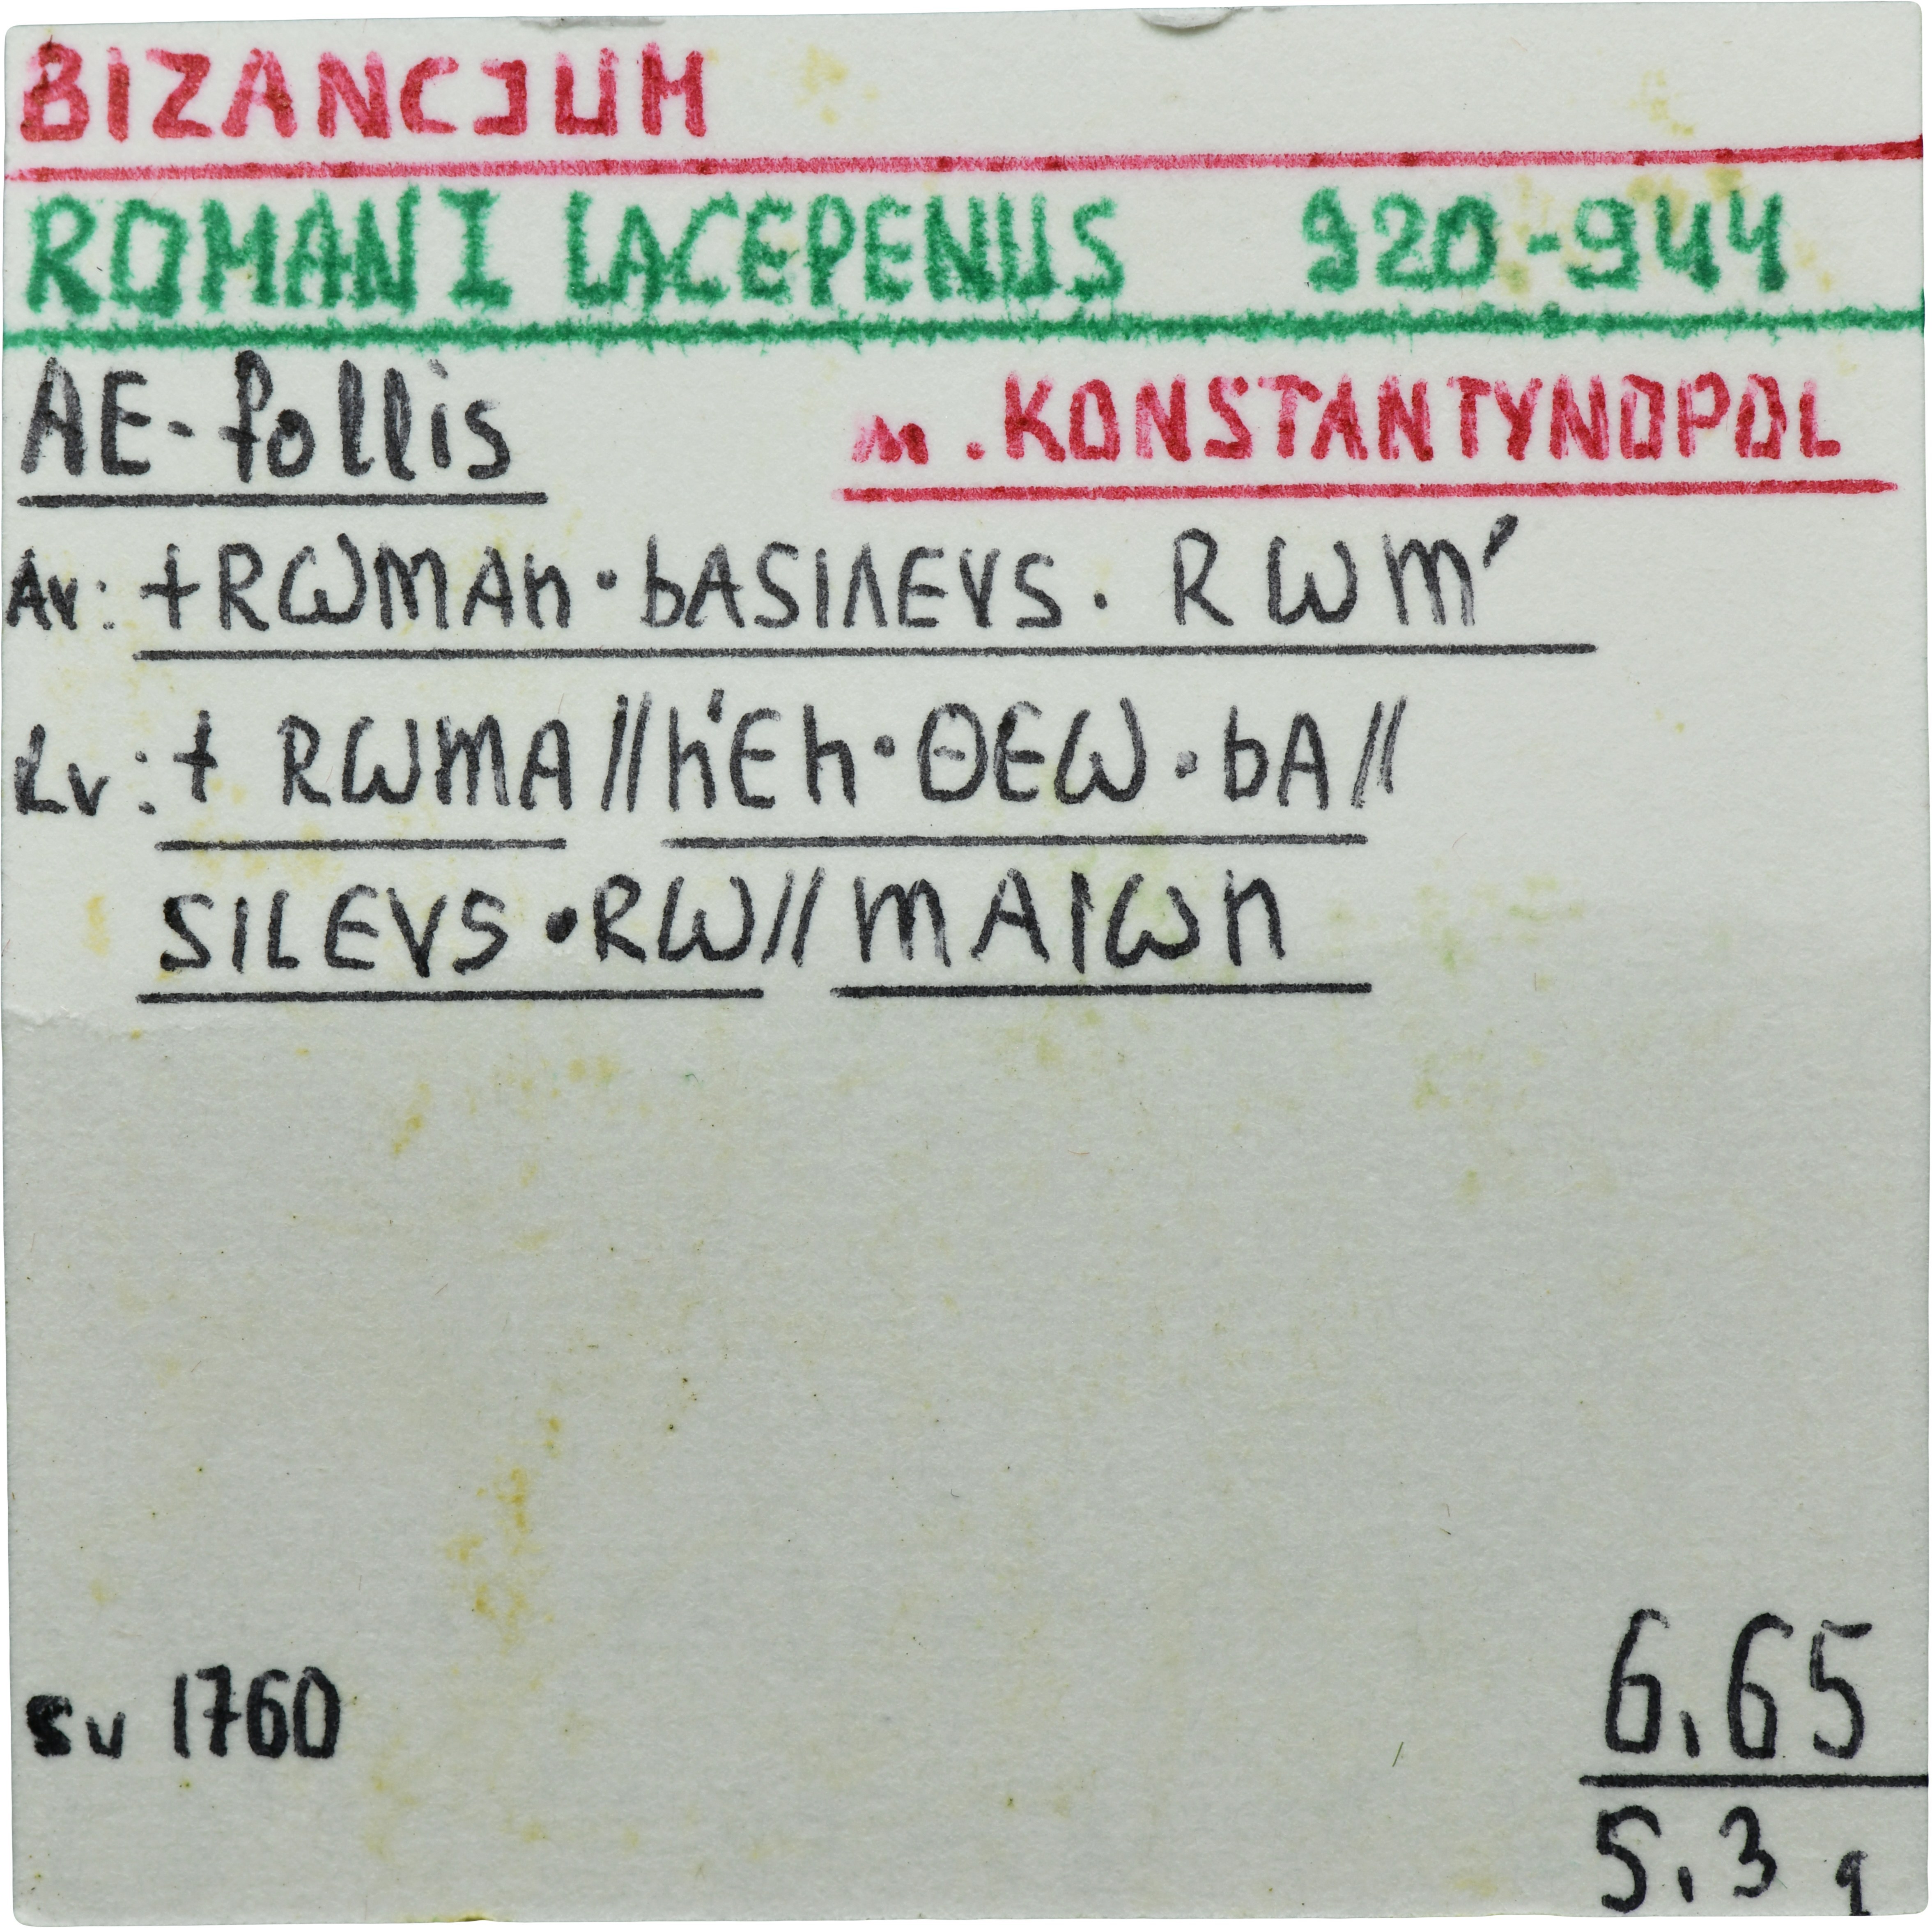 BIZANCJUM
ROMAN I LACEPENUS 920-944
AE-follis m. KONSTANTYNOPOL
Av: +RωMAn·bASIΛEVS. RωM'
Rv: + RωMA//h'Eh·ΘEω·bA//
SILEVS·Rω//MAIωn
sv 1760
6,65
5,3 g